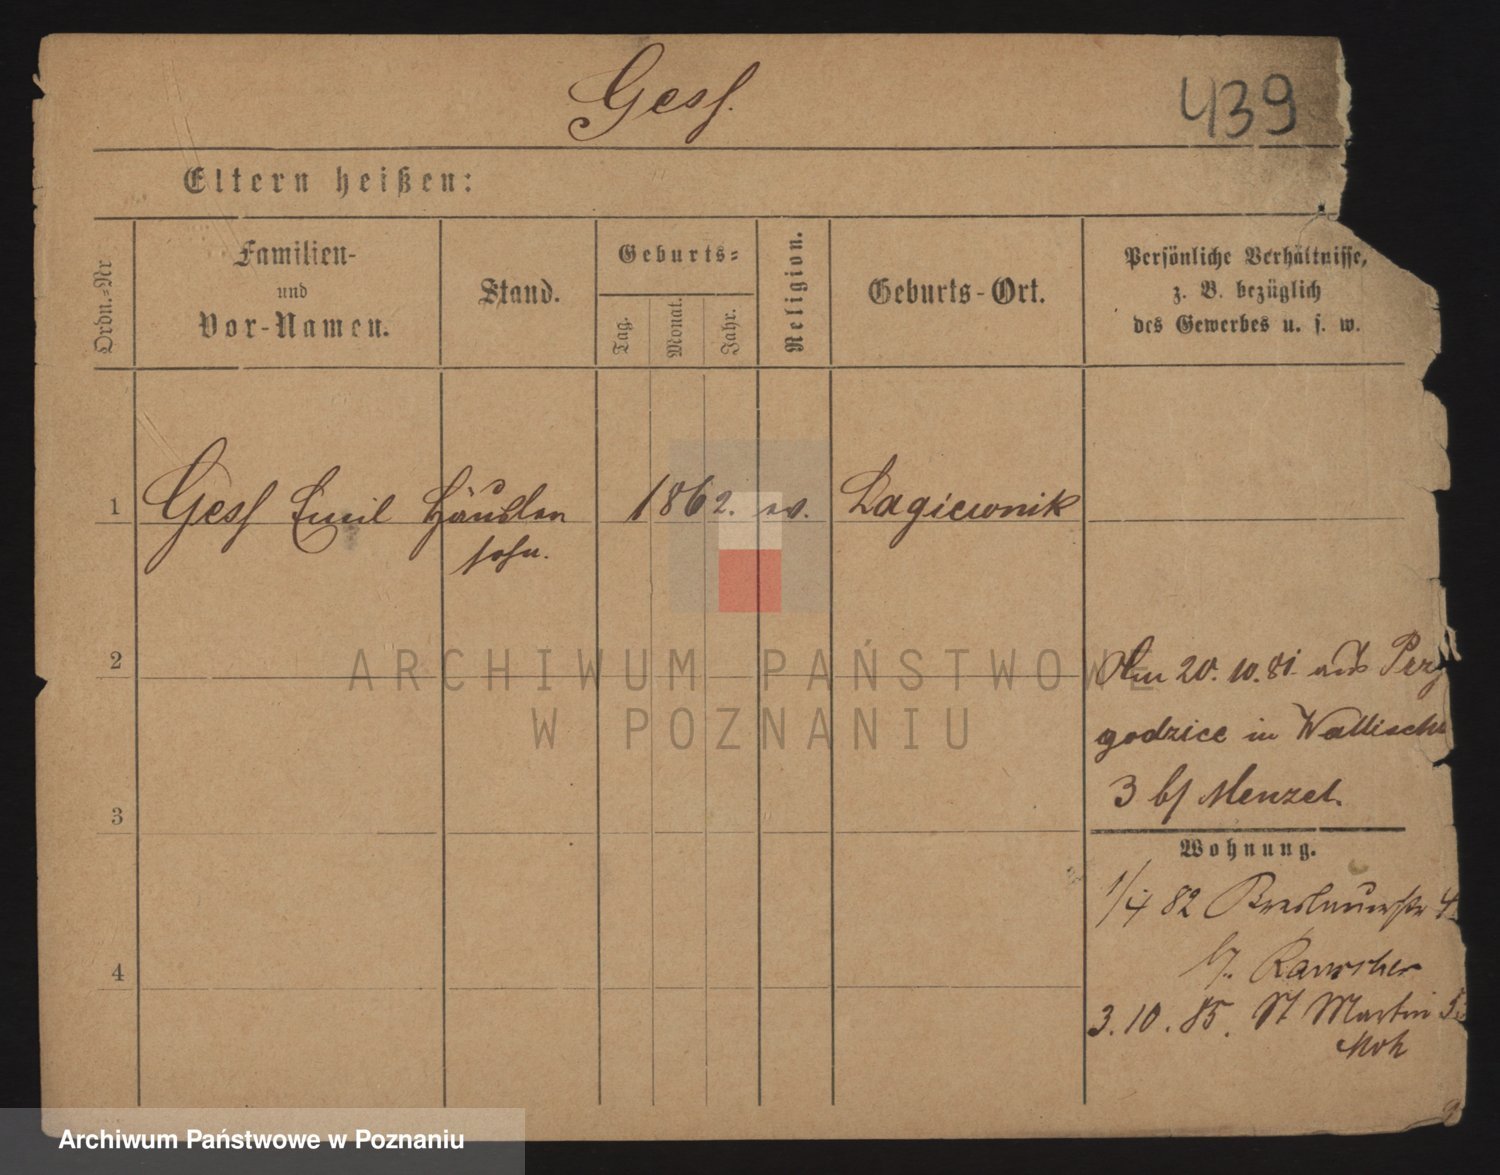 Gess.
439
Eltern heißen:
Ordn.-Nr
Familien-
und
Vor-Namen.
Stand.
Geburts-
Tag.
Monat.
Jahr.
Religion.
Geburts-Ort.
Persönliche Verhältnisse,
z. B. bezüglich
des Gewerbes u. s. w.
1 Gess Emil Häusler 1862. ev. Lagiewnik
sohn.
2
Am 20. 10. 81 aus Przy
godzice in Wallisch
3 b/ Menzel.
3
Wohnung.
1/4 82 Breslauerstr 4
b/. Rauscher
4
3. 10. 85. St Martin
ARCHIWUM PAŃSTWOWE
W POZNANIU
Archiwum Państwowe w Poznaniu